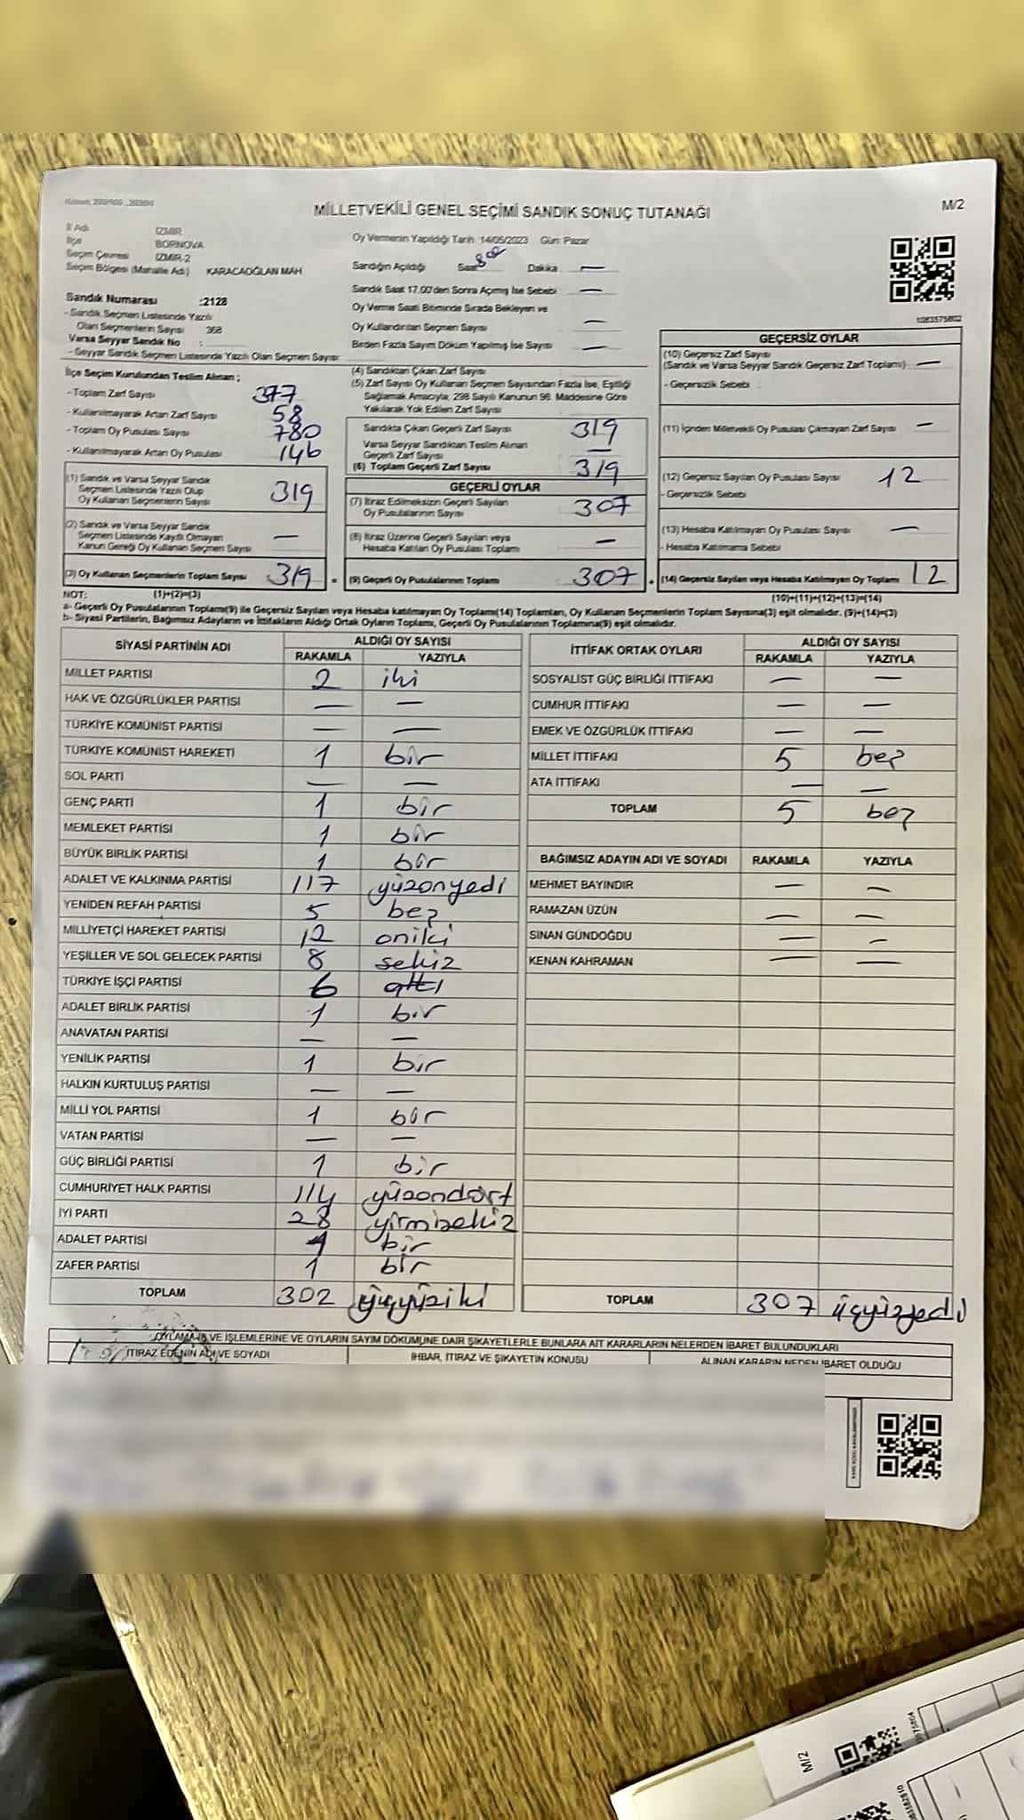 MİLLETVEKİLİ GENEL SEÇİMİ SANDIK SONUÇ TUTANAĞI
M/2
İl Adı İZMİR
İlçe BORNOVA
Seçim Çevresi İZMİR-2
Seçim Bölgesi (Mahalle Adı) KARACAOĞLAN MAH
Sandık Numarası :2128
- Sandık Seçmen Listesinde Yazılı
Olan Seçmenlerin Sayısı 368
Varsa Seyyar Sandık No :
- Seyyar Sandık Seçmen Listesinde Yazılı Olan Seçmen Sayısı:
Oy Vermenin Yapıldığı Tarih :14/05/2023 Gün: Pazar
Sandığın Açıldığı Saat 8 00 Dakika —
Sandık Saat 17.00'den Sonra Açılmış İse Sebebi —
Oy Verme Saati Bitiminde Sırada Bekleyen ve
Oy Kullandırılan Seçmen Sayısı —
Birden Fazla Sayım Döküm Yapılmış İse Sayısı —
İlçe Seçim Kurulundan Teslim Alınan ;
- Toplam Zarf Sayısı 377
- Kullanılmayarak Artan Zarf Sayısı 58
- Toplam Oy Pusulası Sayısı 780
- Kullanılmayarak Artan Oy Pusulası 146
(1) Sandık ve Varsa Seyyar Sandık
Seçmen Listesinde Yazılı Olup
Oy Kullanan Seçmenlerin Sayısı 319
(2) Sandık ve Varsa Seyyar Sandık
Seçmen Listesinde Kayıtlı Olmayan
Kanun Gereği Oy Kullanan Seçmen Sayısı —
(3) Oy Kullanan Seçmenlerin Toplam Sayısı 319
(4) Sandıktan Çıkan Zarf Sayısı
(5) Zarf Sayısı Oy Kullanan Seçmen Sayısından Fazla İse, Eşitliği
Sağlamak Amacıyla, 298 Sayılı Kanunun 98. Maddesine Göre
Yakılarak Yok Edilen Zarf Sayısı
Sandıkta Çıkan Geçerli Zarf Sayısı 319
Varsa Seyyar Sandıktan Teslim Alınan
Geçerli Zarf Sayısı —
(6) Toplam Geçerli Zarf Sayısı 319
GEÇERLİ OYLAR
(7) İtiraz Edilmeksizin Geçerli Sayılan
Oy Pusulalarının Sayısı 307
(8) İtiraz Üzerine Geçerli Sayılan veya
Hesaba Katılan Oy Pusulası Toplamı —
(9) Geçerli Oy Pusulalarının Toplamı 307
GEÇERSİZ OYLAR
(10) Geçersiz Zarf Sayısı
(Sandık ve Varsa Seyyar Sandık Geçersiz Zarf Toplamı) —
- Geçersizlik Sebebi
(11) İçinden Milletvekili Oy Pusulası Çıkmayan Zarf Sayısı —
(12) Geçersiz Sayılan Oy Pusulası Sayısı 12
- Geçersizlik Sebebi
(13) Hesaba Katılmayan Oy Pusulası Sayısı —
- Hesaba Katılmama Sebebi
(14) Geçersiz Sayılan veya Hesaba Katılmayan Oy Toplamı 12
NOT: (1)+(2)=(3) (10)+(11)+(12)+(13)=(14)
a- Geçerli Oy Pusulalarının Toplamı(9) ile Geçersiz Sayılan veya Hesaba katılmayan Oy Toplamı(14) Toplamları, Oy Kullanan Seçmenlerin Toplam Sayısına(3) eşit olmalıdır. (9)+(14)=(3)
b- Siyasi Partilerin, Bağımsız Adayların ve İttifakların Aldığı Ortak Oyların Toplamı, Geçerli Oy Pusulalarının Toplamına(9) eşit olmalıdır.
SİYASİ PARTİNİN ADI ALDIĞI OY SAYISI
RAKAMLA YAZIYLA
MİLLET PARTİSİ 2 iki
HAK VE ÖZGÜRLÜKLER PARTİSİ — —
TÜRKİYE KOMÜNİST PARTİSİ — —
TÜRKİYE KOMÜNİST HAREKETİ 1 bir
SOL PARTİ — —
GENÇ PARTİ 1 bir
MEMLEKET PARTİSİ 1 bir
BÜYÜK BİRLİK PARTİSİ 1 bir
ADALET VE KALKINMA PARTİSİ 117 yüzonyedi
YENİDEN REFAH PARTİSİ 5 beş
MİLLİYETÇİ HAREKET PARTİSİ 12 oniki
YEŞİLLER VE SOL GELECEK PARTİSİ 8 sekiz
TÜRKİYE İŞÇİ PARTİSİ 6 altı
ADALET BİRLİK PARTİSİ 1 bir
ANAVATAN PARTİSİ — —
YENİLİK PARTİSİ 1 bir
HALKIN KURTULUŞ PARTİSİ — —
MİLLİ YOL PARTİSİ 1 bir
VATAN PARTİSİ — —
GÜÇ BİRLİĞİ PARTİSİ 1 bir
CUMHURİYET HALK PARTİSİ 114 yüzondört
İYİ PARTİ 28 yirmisekiz
ADALET PARTİSİ 1 bir
ZAFER PARTİSİ 1 bir
TOPLAM 302 üçyüziki
İTTİFAK ORTAK OYLARI ALDIĞI OY SAYISI
RAKAMLA YAZIYLA
SOSYALİST GÜÇ BİRLİĞİ İTTİFAKI — —
CUMHUR İTTİFAKI — —
EMEK VE ÖZGÜRLÜK İTTİFAKI — —
MİLLET İTTİFAKI 5 beş
ATA İTTİFAKI — —
TOPLAM 5 beş
BAĞIMSIZ ADAYIN ADI VE SOYADI RAKAMLA YAZIYLA
MEHMET BAYINDIR — —
RAMAZAN ÜZÜN — —
SİNAN GÜNDOĞDU — —
KENAN KAHRAMAN — —
TOPLAM 307 üçyüzyedi
OYLAMA İŞ VE İŞLEMLERİNE VE OYLARIN SAYIM DÖKÜMÜNE DAİR ŞİKAYETLERLE BUNLARA AİT KARARLARIN NELERDEN İBARET BULUNDUKLARI
İTİRAZ EDENİN ADI VE SOYADI İHBAR, İTİRAZ VE ŞİKAYETİN KONUSU ALINAN KARARIN NEDEN İBARET OLDUĞU
M/2